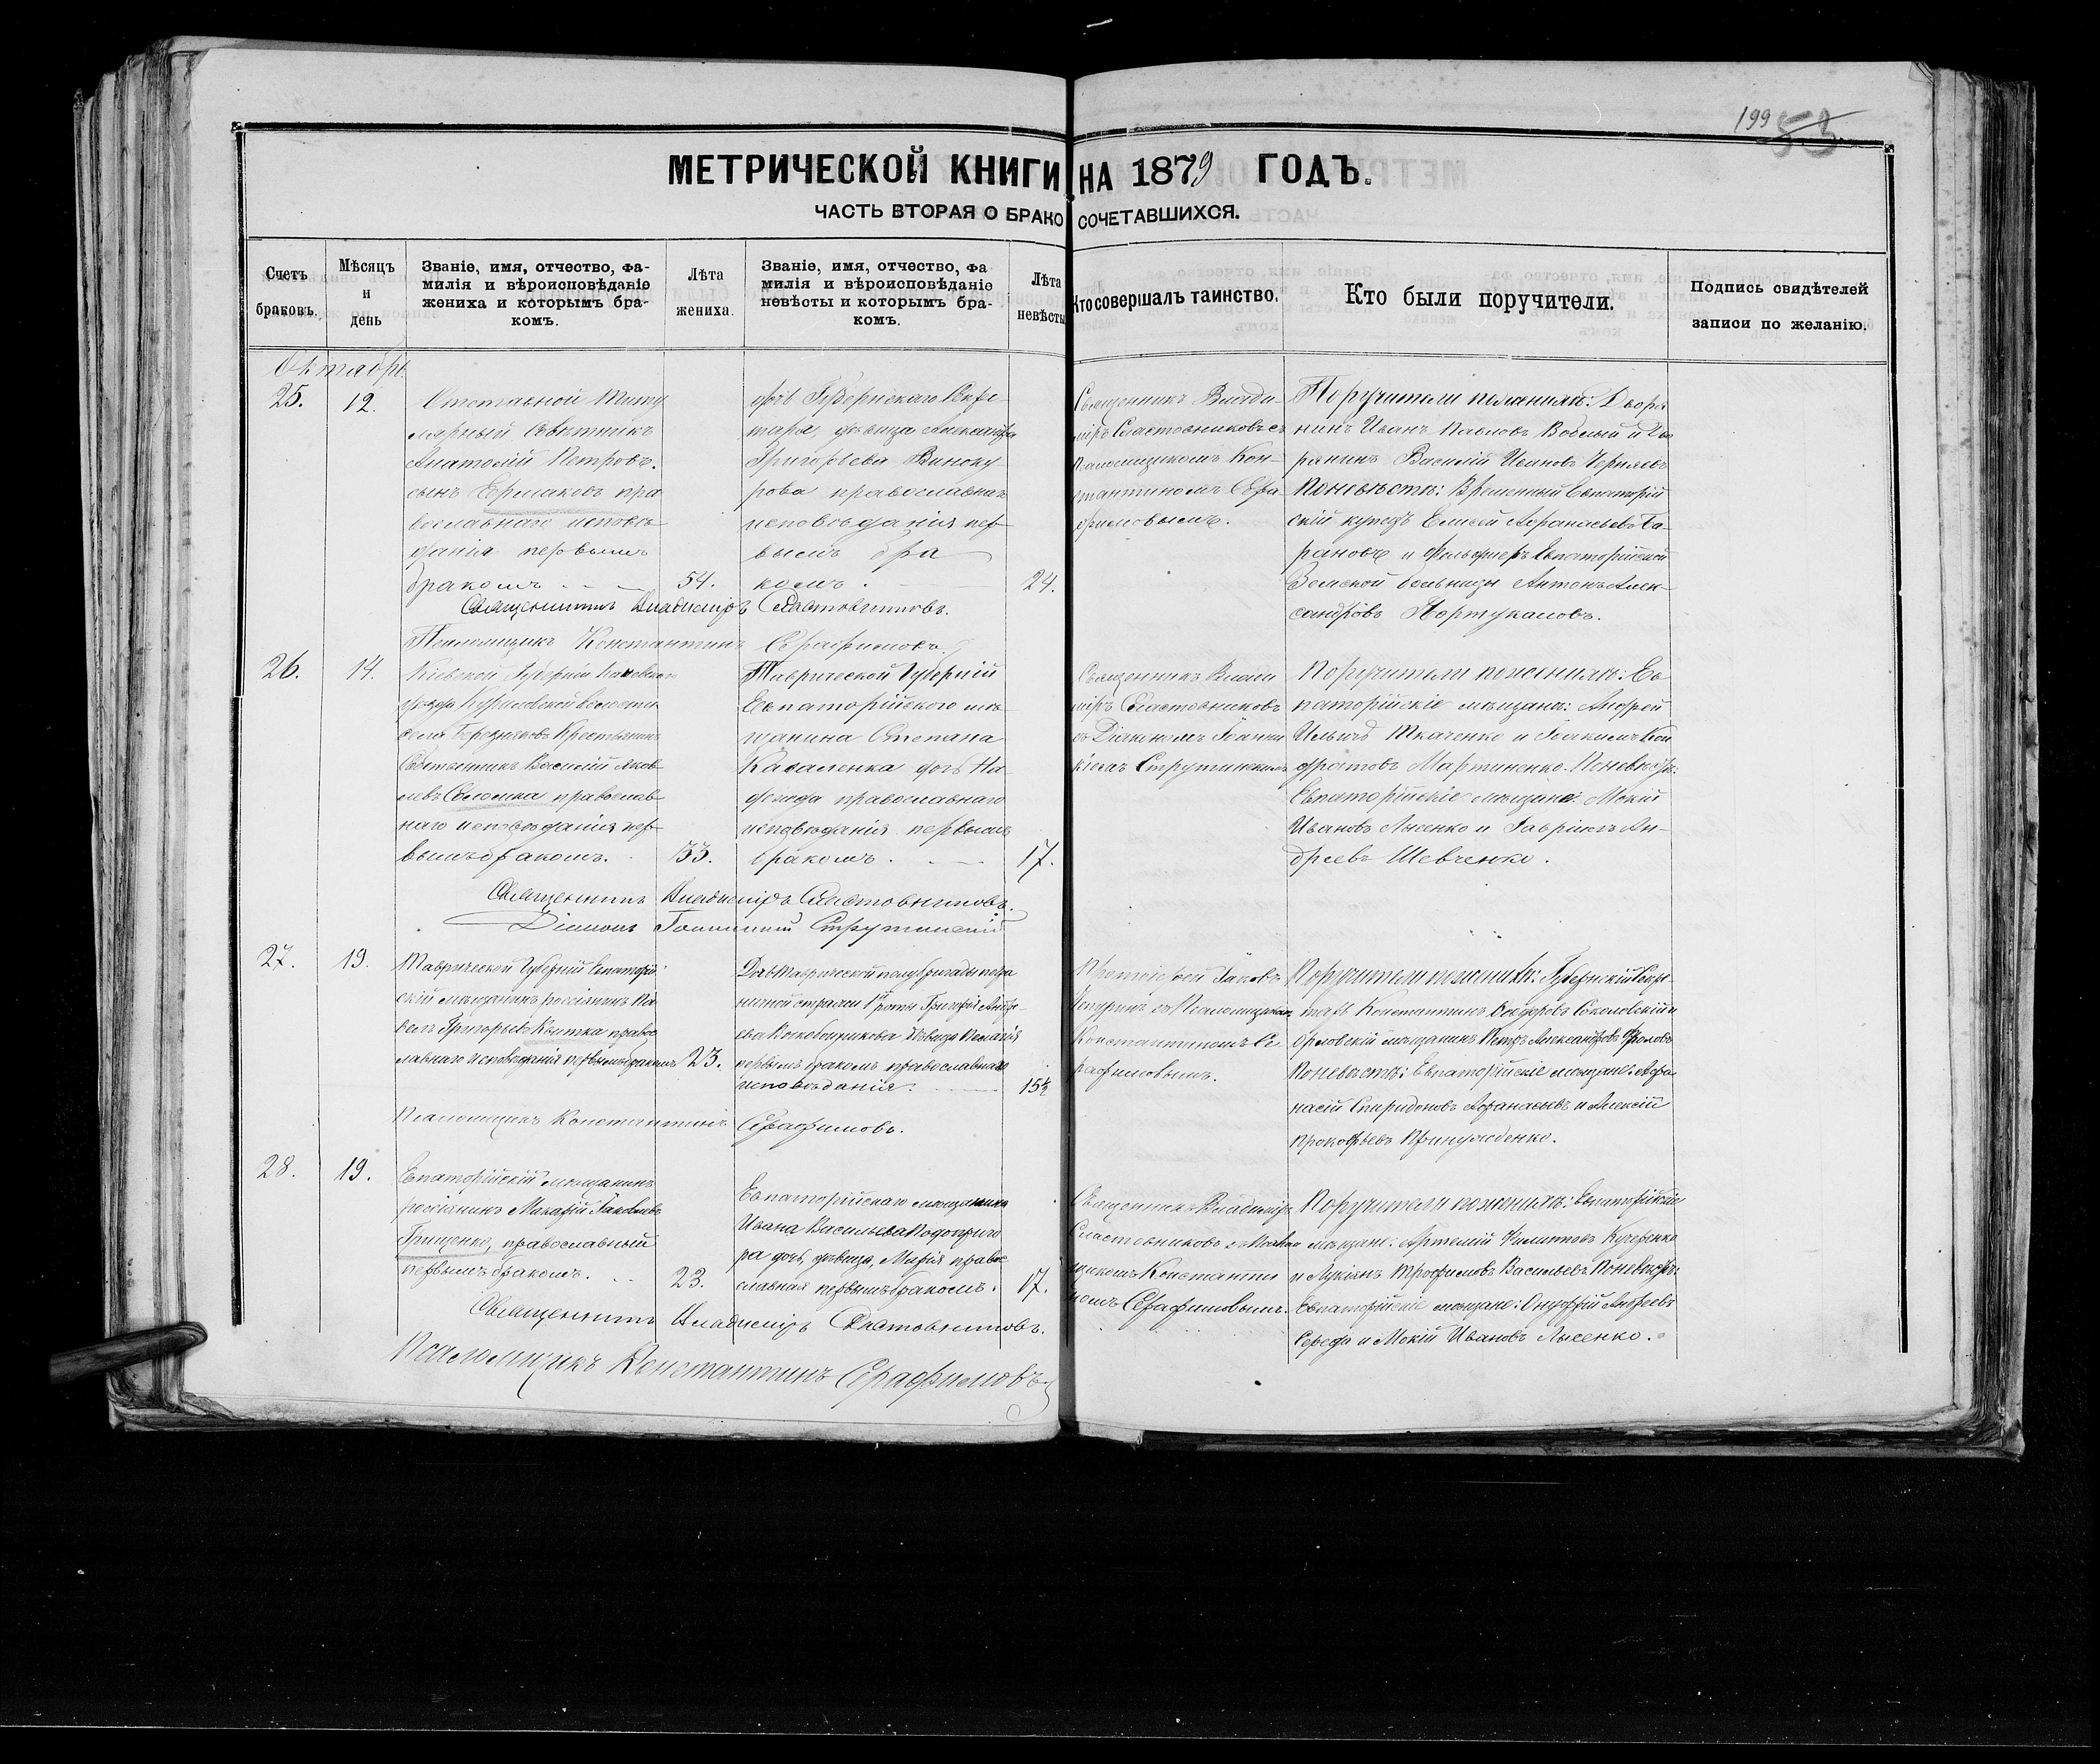 199 53
МЕТРИЧЕСКОЙ КНИГИ НА 1879 ГОДЪ.
ЧАСТЬ ВТОРАЯ О БРАКОСОЧЕТАВШИХСЯ.
Счетъ браковъ.
Мѣсяцъ и день
Званіе, имя, отчество, фа-
милія и вѣроисповѣданіе
жениха и которымъ бра-
комъ.
Лѣта жениха.
Званіе, имя, отчество, фа
милія и вѣроисповѣданіе
невѣсты и которымъ бра-
комъ.
Лѣта невѣсты
Кто совершалъ таинство.
Кто были поручители.
Подпись свидѣтелей
записи по желанію.
Октябрь
25.
12.
Отставной Титу
лярный Совѣтникъ
Анатолій Петровъ
сынъ Ермаковъ пра
вославнаго исповѣ
данія первымъ
бракомъ
54.
дочь Губернскаго Секре
таря, дѣвица Александра
Григорьева Виноку
рова православнаго
исповѣданія пер
вымъ бра
комъ.
24.
Священникъ Влади-
міръ Сластовниковъ съ
Псаломщикомъ Кон-
стантиномъ Сера
фимовымъ.
Поручители по женихѣ: Дворя
нинъ Иванъ Павловъ и Дво
рянинъ Василій Ивановъ Черняевъ
По невѣстѣ: Временный Евпаторій
скій купецъ Елисей Афанасьевъ Га-
рановъ и Фельдшеръ Евпаторійской
Земской больницы Антонъ Алек-
сандровъ Портукаловъ.
Священникъ Владиміръ Сластовниковъ.
Псаломщикъ Константинъ Серафимовъ.
26.
14.
Кіевской Губерніи Каневскаго
уѣзда Куриловской волости
села Березняковъ Крестьянинъ
Собственникъ Василій Яков
левъ Соломка православ
наго исповѣданія пер
вымъ бракомъ.
33.
Таврической Губерніи
Евпаторійского мѣ
щанина Степана
Каваленка дочь На
дежда православнаго
исповѣданія первымъ
бракомъ.
17.
Священникъ Влади
міръ Сластовниковъ
съ Діакономъ Іоанни
кіемъ Струтинскимъ
Поручители по женихѣ: Ев
паторійскіе мѣщане: Андрей
Ильичъ Ткаченко и Іоакимъ Кон
дратовъ Мартиненко. По невѣстѣ:
Евпаторійскіе мѣщане: Мокій
Ивановъ Лысенко и Гавріилъ Ан-
дреевъ Шевченко.
Священникъ Владиміръ Сластовниковъ.
Діаконъ Іоанникій Струтинскій
27.
19.
Таврической Губерніи Евпаторій
скій мѣщанинъ россіянинъ Па
велъ Григорьевъ Квитка правос
лавнаго исповѣданія первымъ бракомъ
23.
Дочь Таврической полубригады погра
ничной стражи 1й роты Григорія Андре
ева Воскобойникова дѣвица Пелагія
первымъ бракомъ православнаго
исповѣданія.
15½
Протоіерей Іаковъ
Чепуринъ съ Псаломщикомъ
Константиномъ Се
рафимовымъ.
Поручители по женихѣ: Губернскій Секре-
тарь Константинъ Ѳедоровъ Соколовскій и
Орловскій мѣщанинъ Петръ Александровъ Фроловъ
По невѣстѣ: Евпаторійскіе мѣщане: Афа
насій Спиридоновъ Афанасьевъ и Алексій
Прокофьевъ Принужденко.
Псаломщикъ Константинъ Серафимовъ.
28.
19.
Евпаторійскій мѣщанинъ
россіянинъ Макарій Іаковлевъ
Грищенко, православный
первымъ бракомъ.
23.
Евпаторійскаго мѣщанина
Ивана Васильева Подоприго
ра дочь, дѣвица, Марія правос
славная первымъ бракомъ.
17.
Священникъ Владиміръ
Сластовниковъ съ Псалом
щикомъ Константи
номъ Серафимовымъ.
Поручители по женихѣ: Евпаторійскіе
мѣщане: Артемій Филипповъ Кучеренко
и Лукіянъ Трофимовъ Васильевъ. По невѣстѣ:
Евпаторійскіе мѣщане: Онуфрій Андреевъ
Середа и Мокій Ивановъ Лысенко.
Священникъ Владиміръ Сластовниковъ.
Псаломщикъ Константинъ Серафимовъ